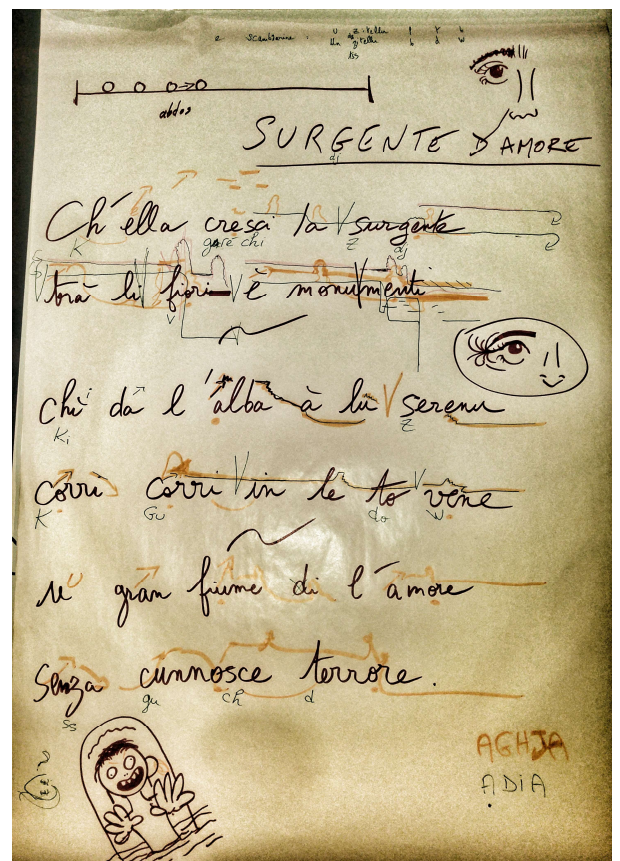 e scambarine : u zitellu f t b
Un zitellu b d w
ss
abdos
SURGENTE D'AMORE
dj
Ch'ella cresci la surgente
K gare chi Z dj
trà li fiori è monumenti
V
chì dà l'alba à lu serenu
Ki Z
corri corri in le to vene
K Gu do w
u gran fiume di l'amore
Senza cunnosce terrore.
ss gu ch d
AGHJA
ADIA